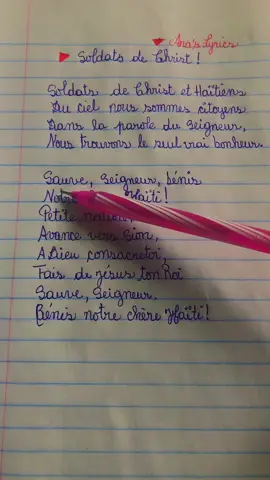 Ara's Lyrics
Soldats de Christ !
Soldats de Christ et Haïtiens
Du ciel nous sommes citoyens
Dans la parole du Seigneur,
Nous trouvons le seul vrai bonheur.
Sauve, Seigneur, bénis
Notre Haïti !
Petite nation,
Avance vers Sion,
A Dieu consacre-toi,
Fais de Jésus ton Roi
Sauve, Seigneur.
Bénis notre chère Haïti !